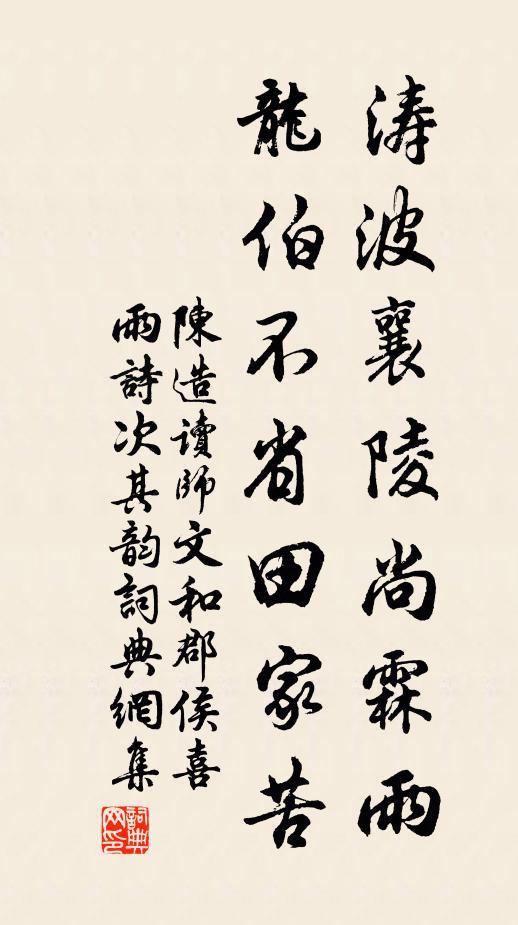 涛波襄陵尚霖雨
龍伯不省田家苦
陳造讀師文和郡侯喜
雨詩次其韵詞典網集
詞典网印